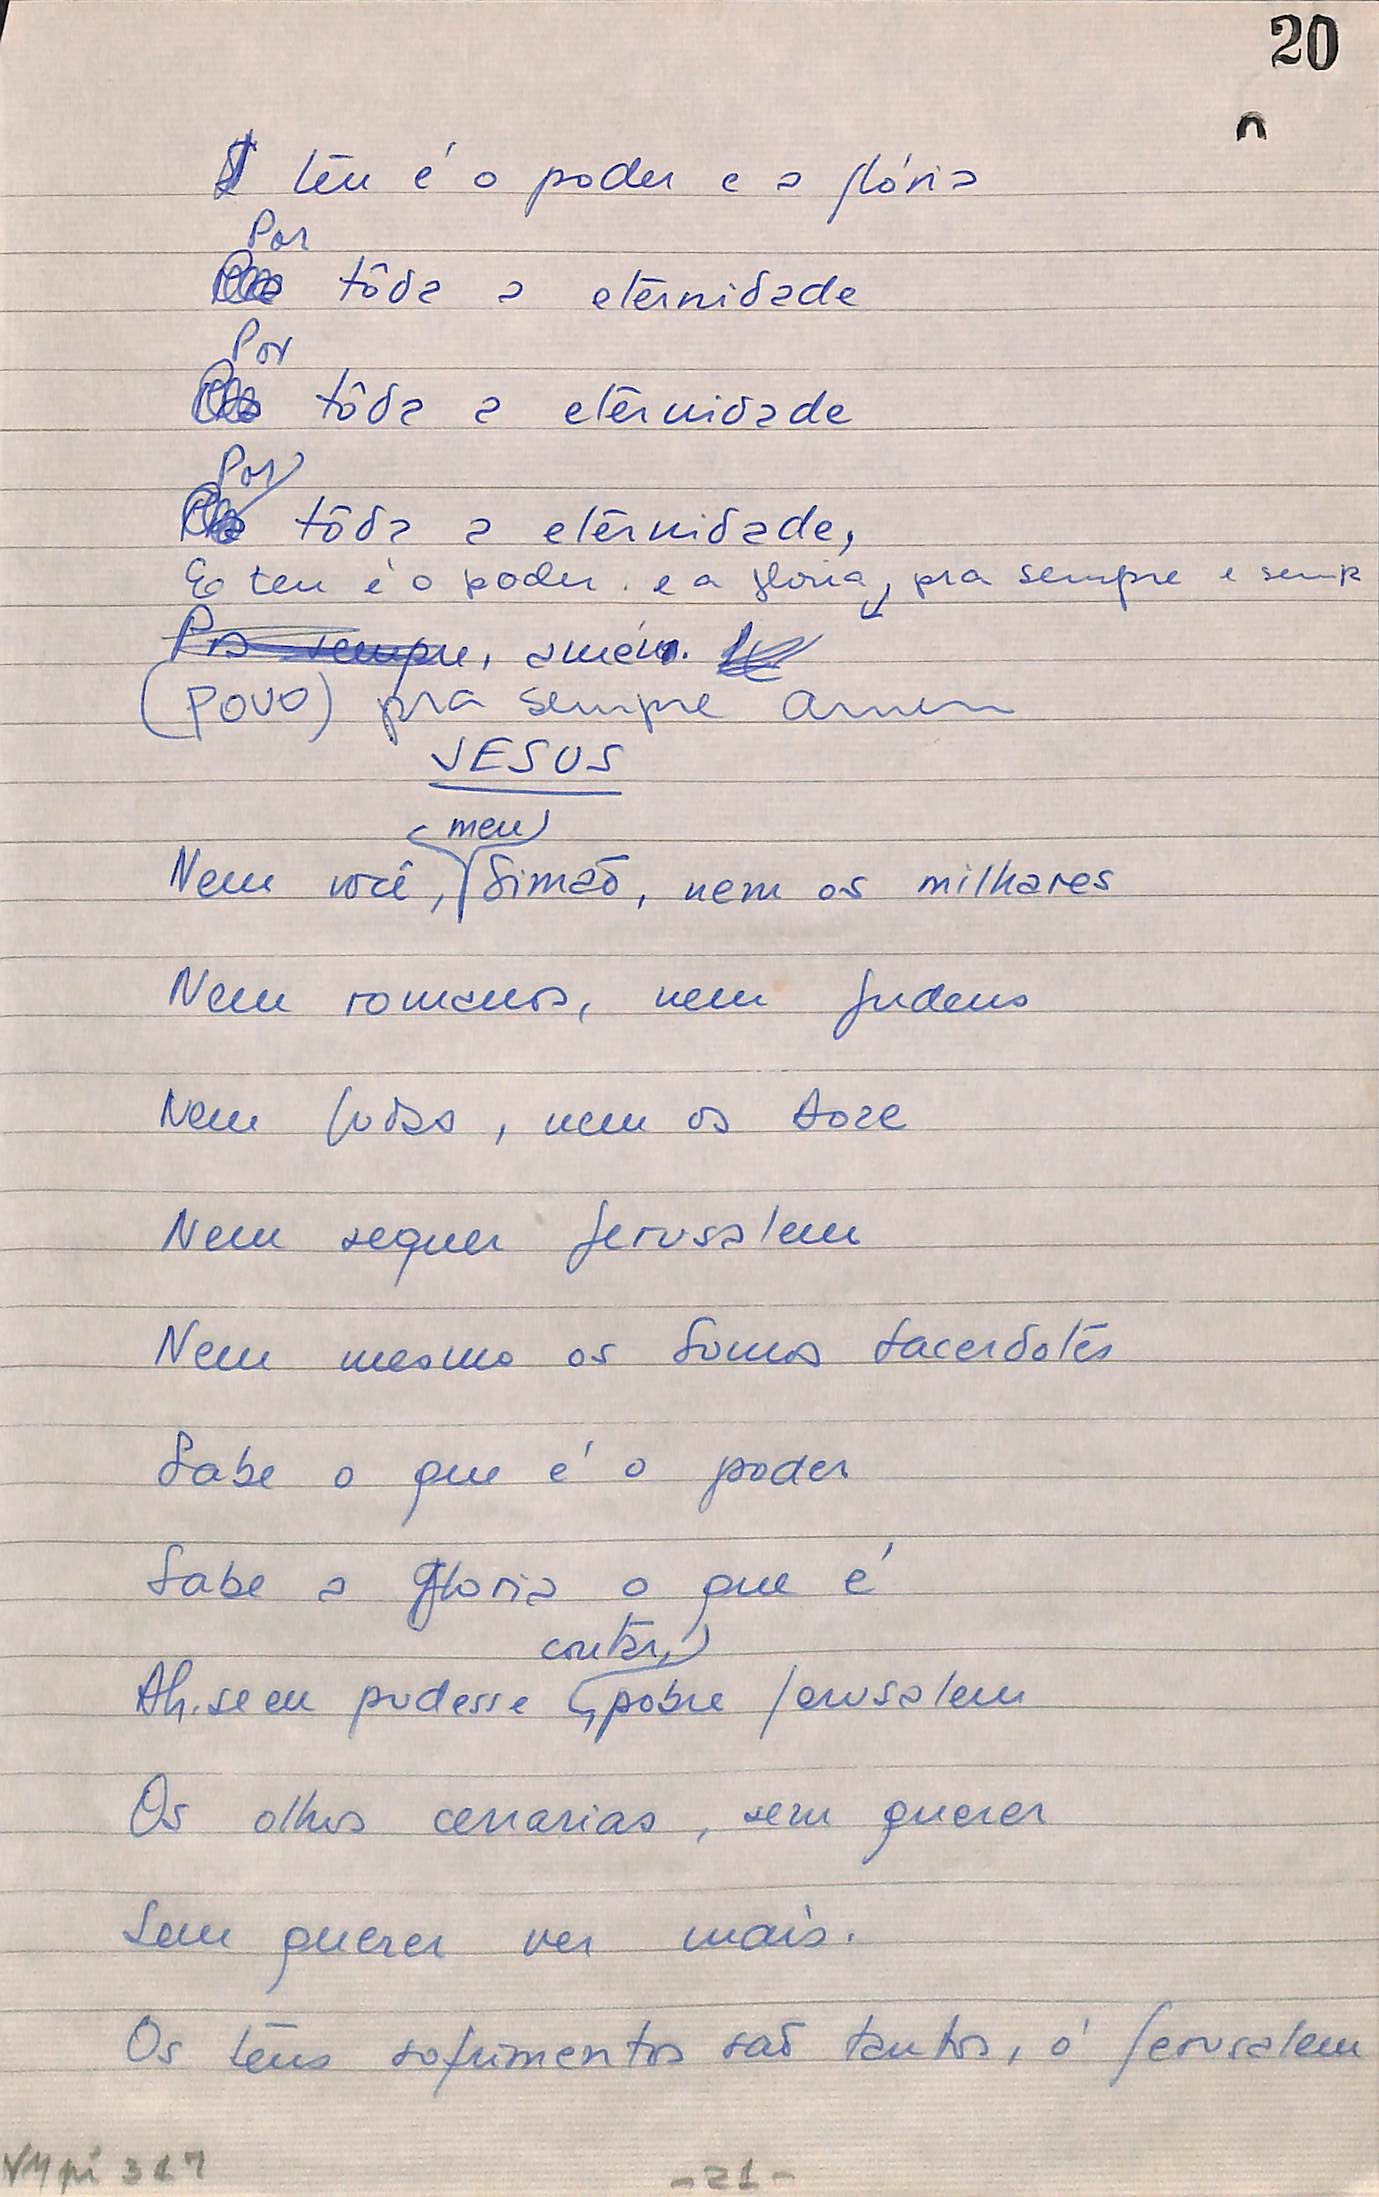 20
teu é o poder e a glória
Por
tôda a eternidade
Por
tôda a eternidade
Por
tôda a eternidade,
E teu é o poder e a gloria, pra sempre e semp
Pra sempre, amém.
(POVO) pra sempre amem
JESUS
meu
Nem você, Simão, nem os milhares
Nem romanos, nem judeus
Nem Judas, nem os doze
Nem sequer Jerusalem
Nem mesmo os Sumos Sacerdotes
Sabe o que é o poder
Sabe a Gloria o que é
contar,
Ah. se eu pudesse, pobre Jerusalem
Os olhos cerrarias, sem querer
Sem querer ver mais.
Os teus sofrimentos são tantos, ó Jerusalem
VMpi 317
-21-